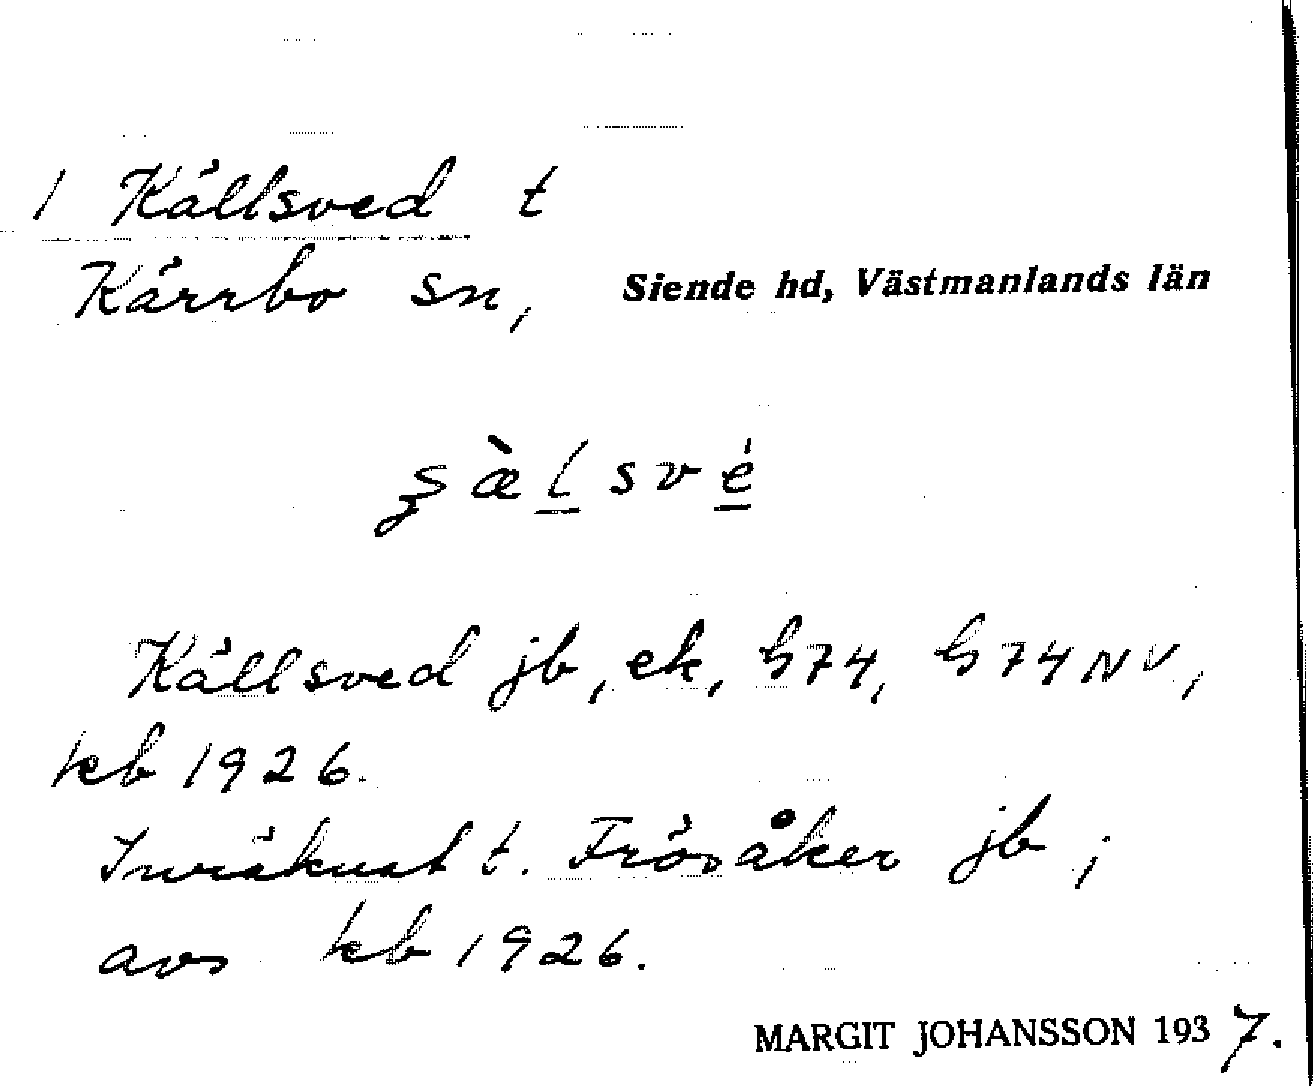 1 Källsved t
Kärrbo sn, Siende hd, Västmanlands län
ʂæ̀lsvé
Källsved jb, ek, h74, h74NV,
kb 1926.
Inräknat t. Frösåker jb ;
avs kb 1926.
MARGIT JOHANSSON 1937.